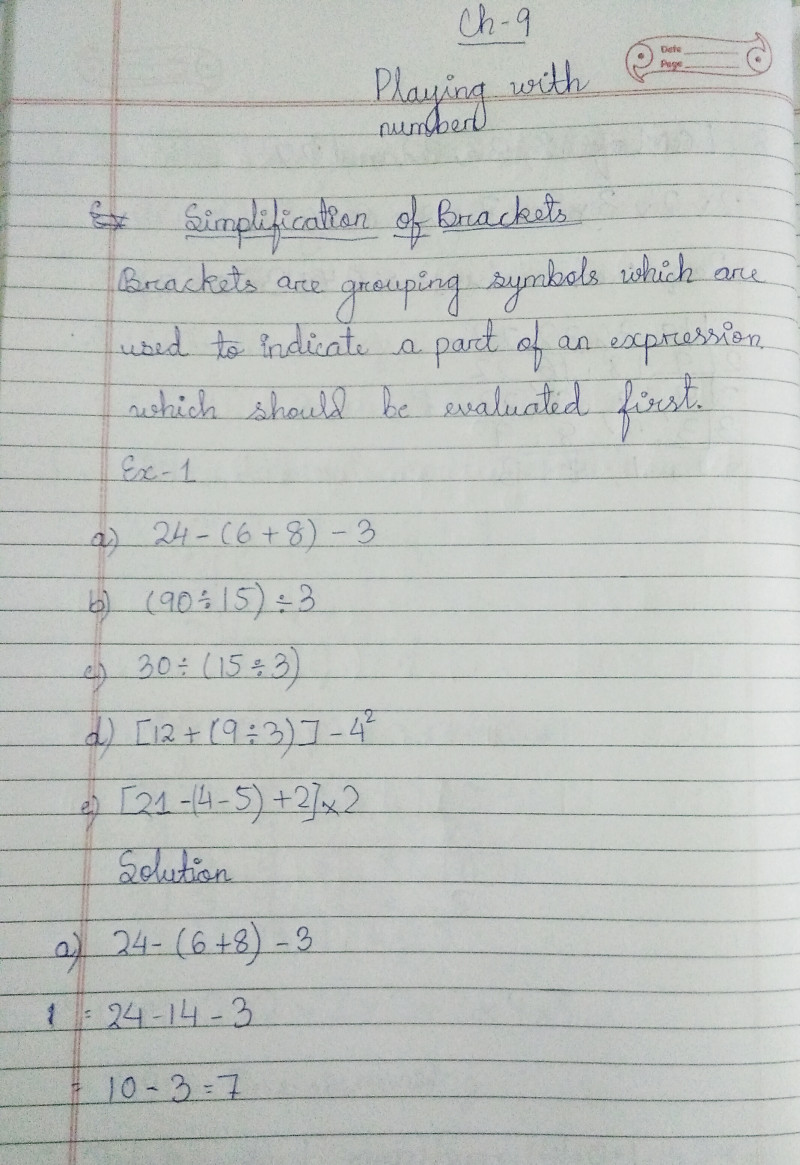 Ch-9
Date
Page
Playing with
number
Ex Simplification of Brackets
Brackets are grouping symbols which are
used to indicate a part of an expression
which should be evaluated first.
Ex-1
a) 24-(6+8)-3
b) (90÷15)÷3
c) 30÷(15÷3)
d) [12+(9÷3)]-4²
e) [21-(4-5)+2]×2
Solution
a) 24-(6+8)-3
1 = 24-14-3
= 10-3=7